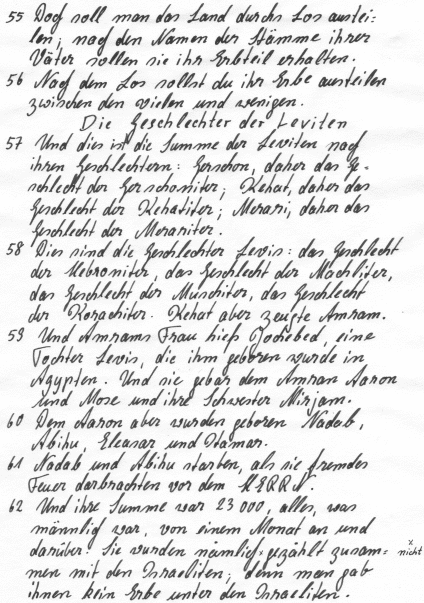 55 Doch soll man das Land durchs Los austei=
len; nach den Namen der Stämme ihrer
Väter sollen sie ihr Erbteil erhalten.
56 Nach dem Los sollst du ihr Erbe austeilen
zwischen den vielen und wenigen.
Die Geschlechter der Leviten
57 Und dies ist die Summe der Leviten nach
ihren Geschlechtern: Gerschon, daher das Ge-
schlecht der Gerschoniter; Kehat, daher das
Geschlecht der Kehatiter; Merari, daher das
Geschlecht der Merariter.
58 Dies sind die Geschlechter Levis: das Geschlecht
der Hebroniter, das Geschlecht der Machliter,
das Geschlecht der Muschiter, das Geschlecht
der Korachiter. Kehat aber zeugte Amram.
59 Und Amrams Frau hieß Jochebed, eine
Tochter Levis, die ihm geboren wurde in
Ägypten. Und sie gebar dem Amram Aaron
und Mose und ihre Schwester Mirjam.
60 Dem Aaron aber wurden geboren Nadab,
Abihu, Eleasar und Itamar.
61 Nadab und Abihu starben, als sie fremdes
Feuer darbrachten vor dem HERRN.
62 Und ihre Summe war 23 000, alles, was
männlich war, von einem Monat an und
darüber. Sie wurden nämlich × gezählt zusam= × nicht
men mit den Israeliten; denn man gab
ihnen kein Erbe unter den Israeliten.